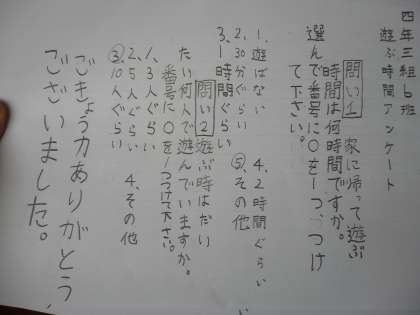 四年三組6班
遊ぶ時間アンケート
問い1 家に帰って遊ぶ
時間は何時間ですか。
選んで番号に〇を一つ、つけ
て下さい。
1、遊ばない 4、2時間ぐらい
2、30分ぐらい 5、その他
3、1時間ぐらい
問い2 遊ぶ時はだい
たい何人で遊んでいますか。
番号に〇を一つつけて下さい。
1、3人ぐらい 4、その他
2、5人ぐらい
3、10人ぐらい
ごきょう力ありがとう
ございました。